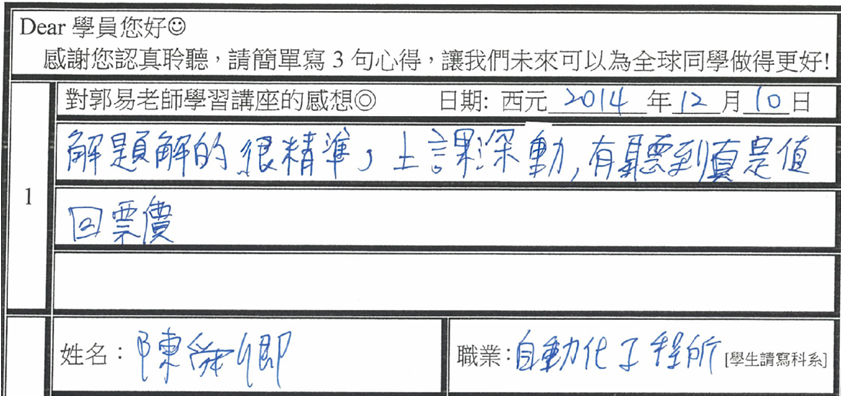 Dear 學員您好☺
感謝您認真聆聽，請簡單寫 3 句心得，讓我們未來可以為全球同學做得更好!
對郭易老師學習講座的感想◎ 日期: 西元 2014 年 12 月 10 日
1
解題解的很精準，上課深動,有聽到真是值
回票價
姓名：陳舜卿 職業：自動化工程所 [學生請寫科系]